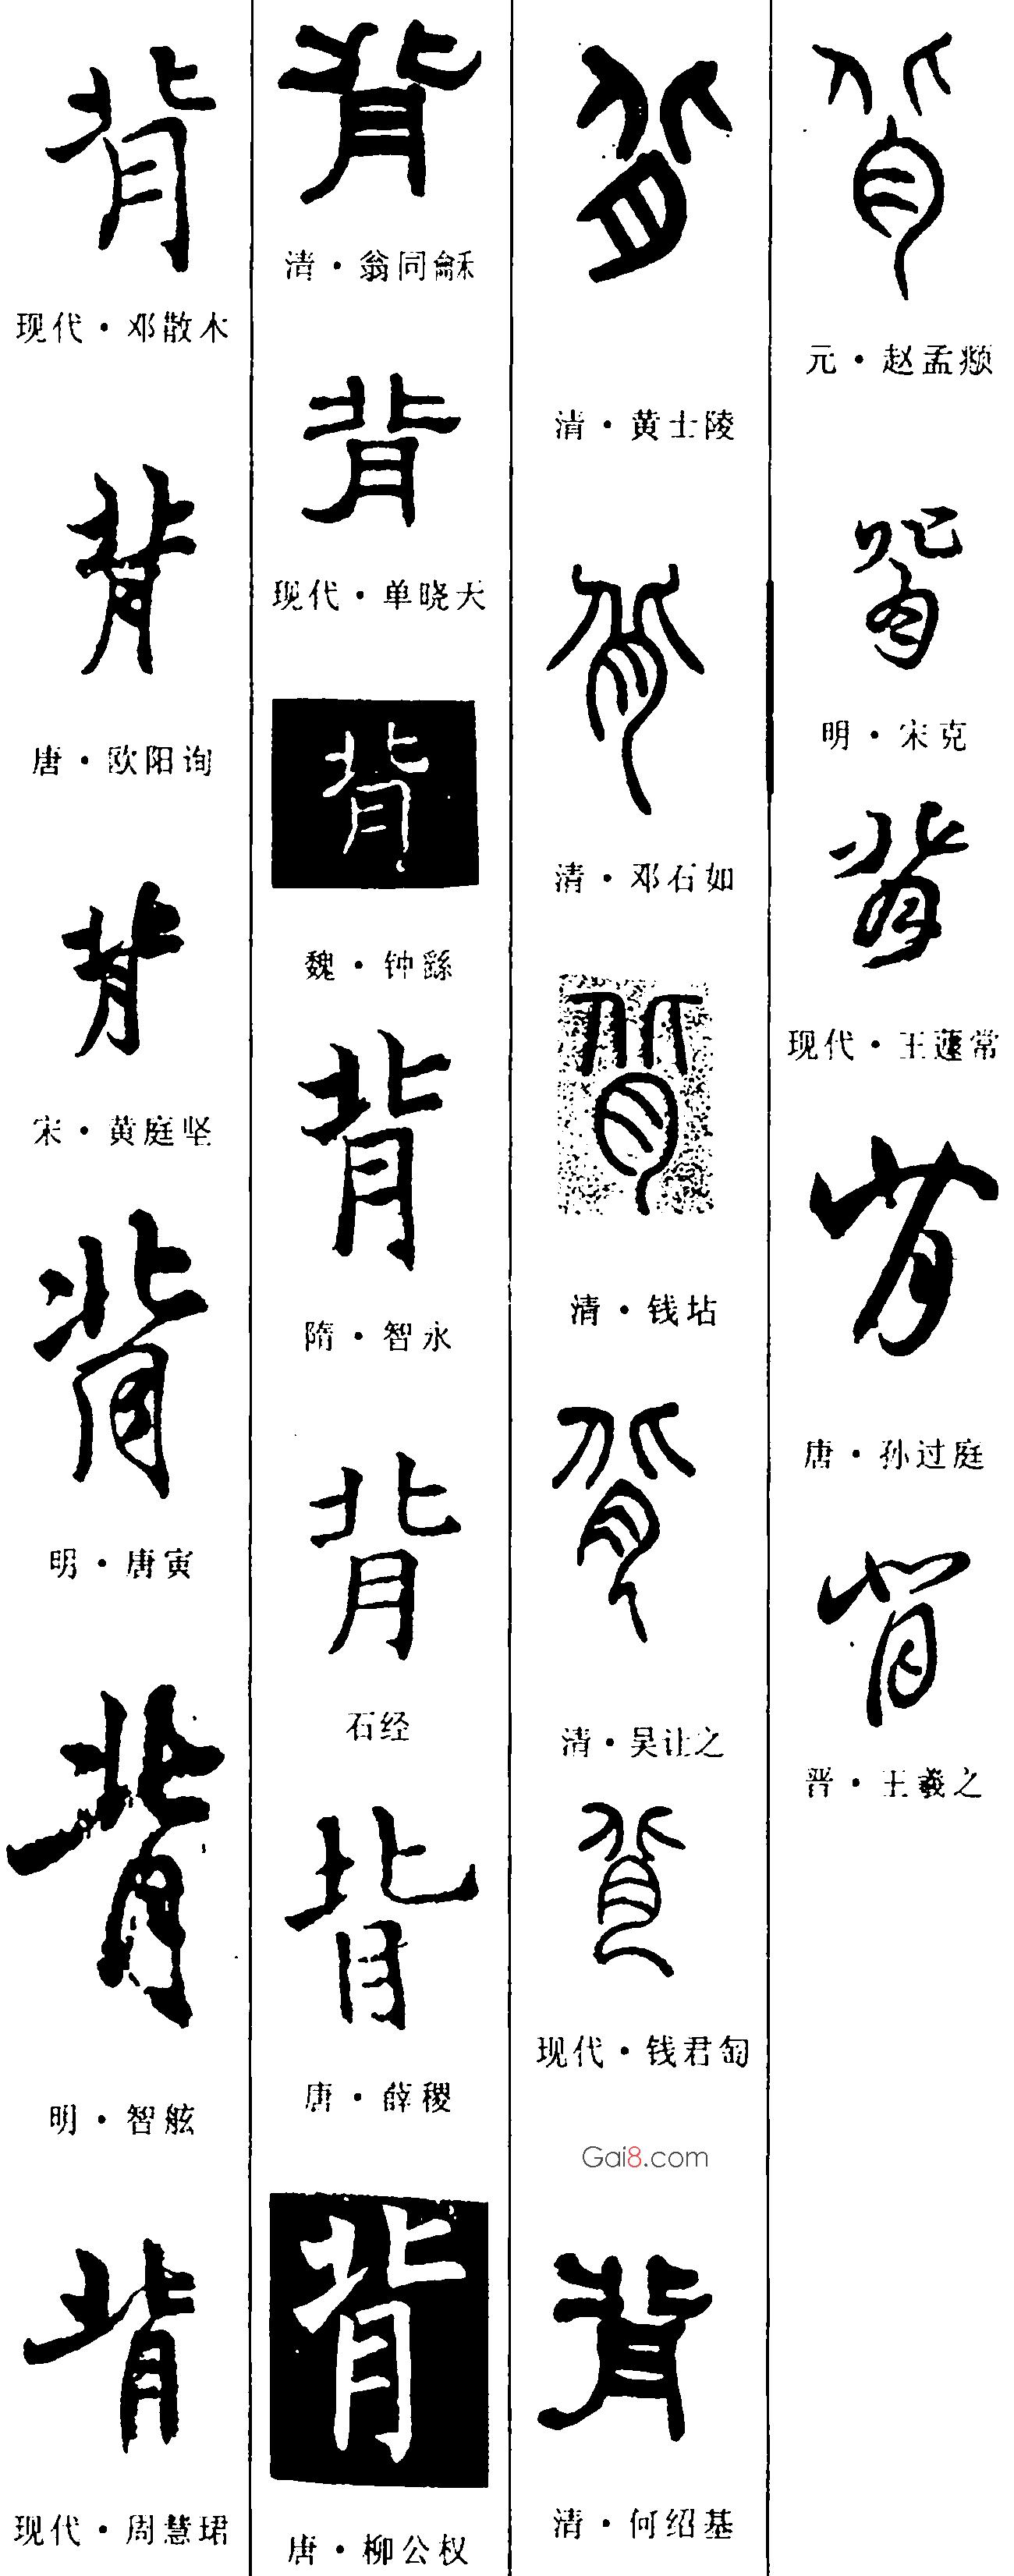 背
现代·邓散木
背
唐·欧阳询
背
宋·黄庭坚
背
明·唐寅
背
明·智舷
背
现代·周慧珺
背
清·翁同龢
背
现代·单晓天
背
魏·钟繇
背
隋·智永
背
石经
背
唐·薛稷
背
唐·柳公权
背
清·黄士陵
背
清·邓石如
背
清·钱坫
背
清·吴让之
背
现代·钱君匋
Gai8.com
背
清·何绍基
背
元·赵孟頫
背
明·宋克
背
现代·王蘧常
背
唐·孙过庭
背
晋·王羲之